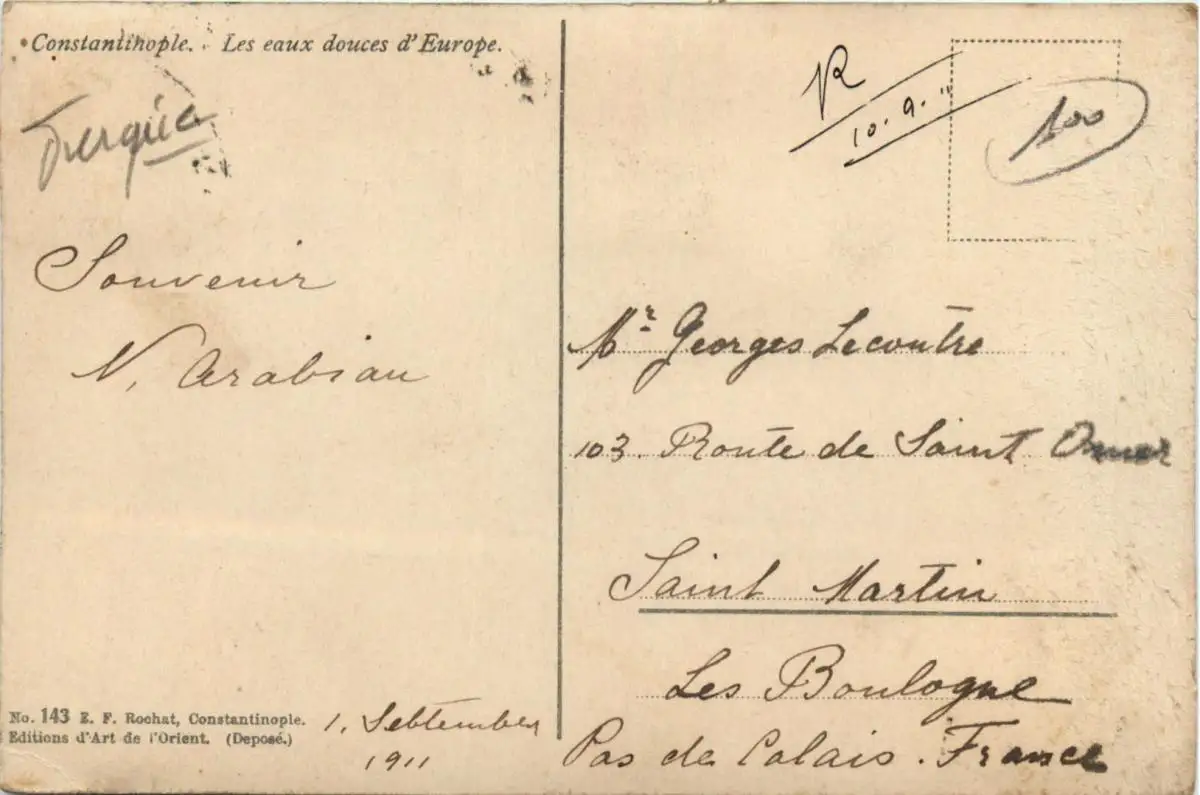 Constantinople. Les eaux douces d'Europe.
Turquia
Souvenir
N. Arabian
No. 143 E. F. Rochat, Constantinople.
Editions d'Art de l'Orient. (Deposé.)
1. Sebtember
1911
R
10.9.11
100
Mr Georges Lecoutre
103. Route de Saint Omer
Saint Martin
Les Boulogne
Pas de Calais. France